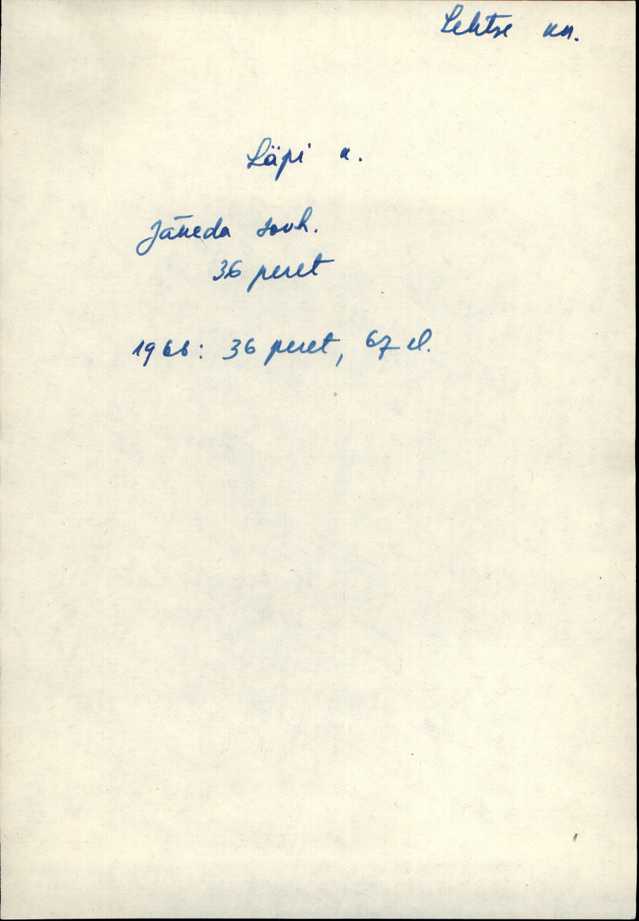 Lehtse kn.
Läpi k.
Jäneda sovh.
36 peret
1966: 36 peret, 67 el.